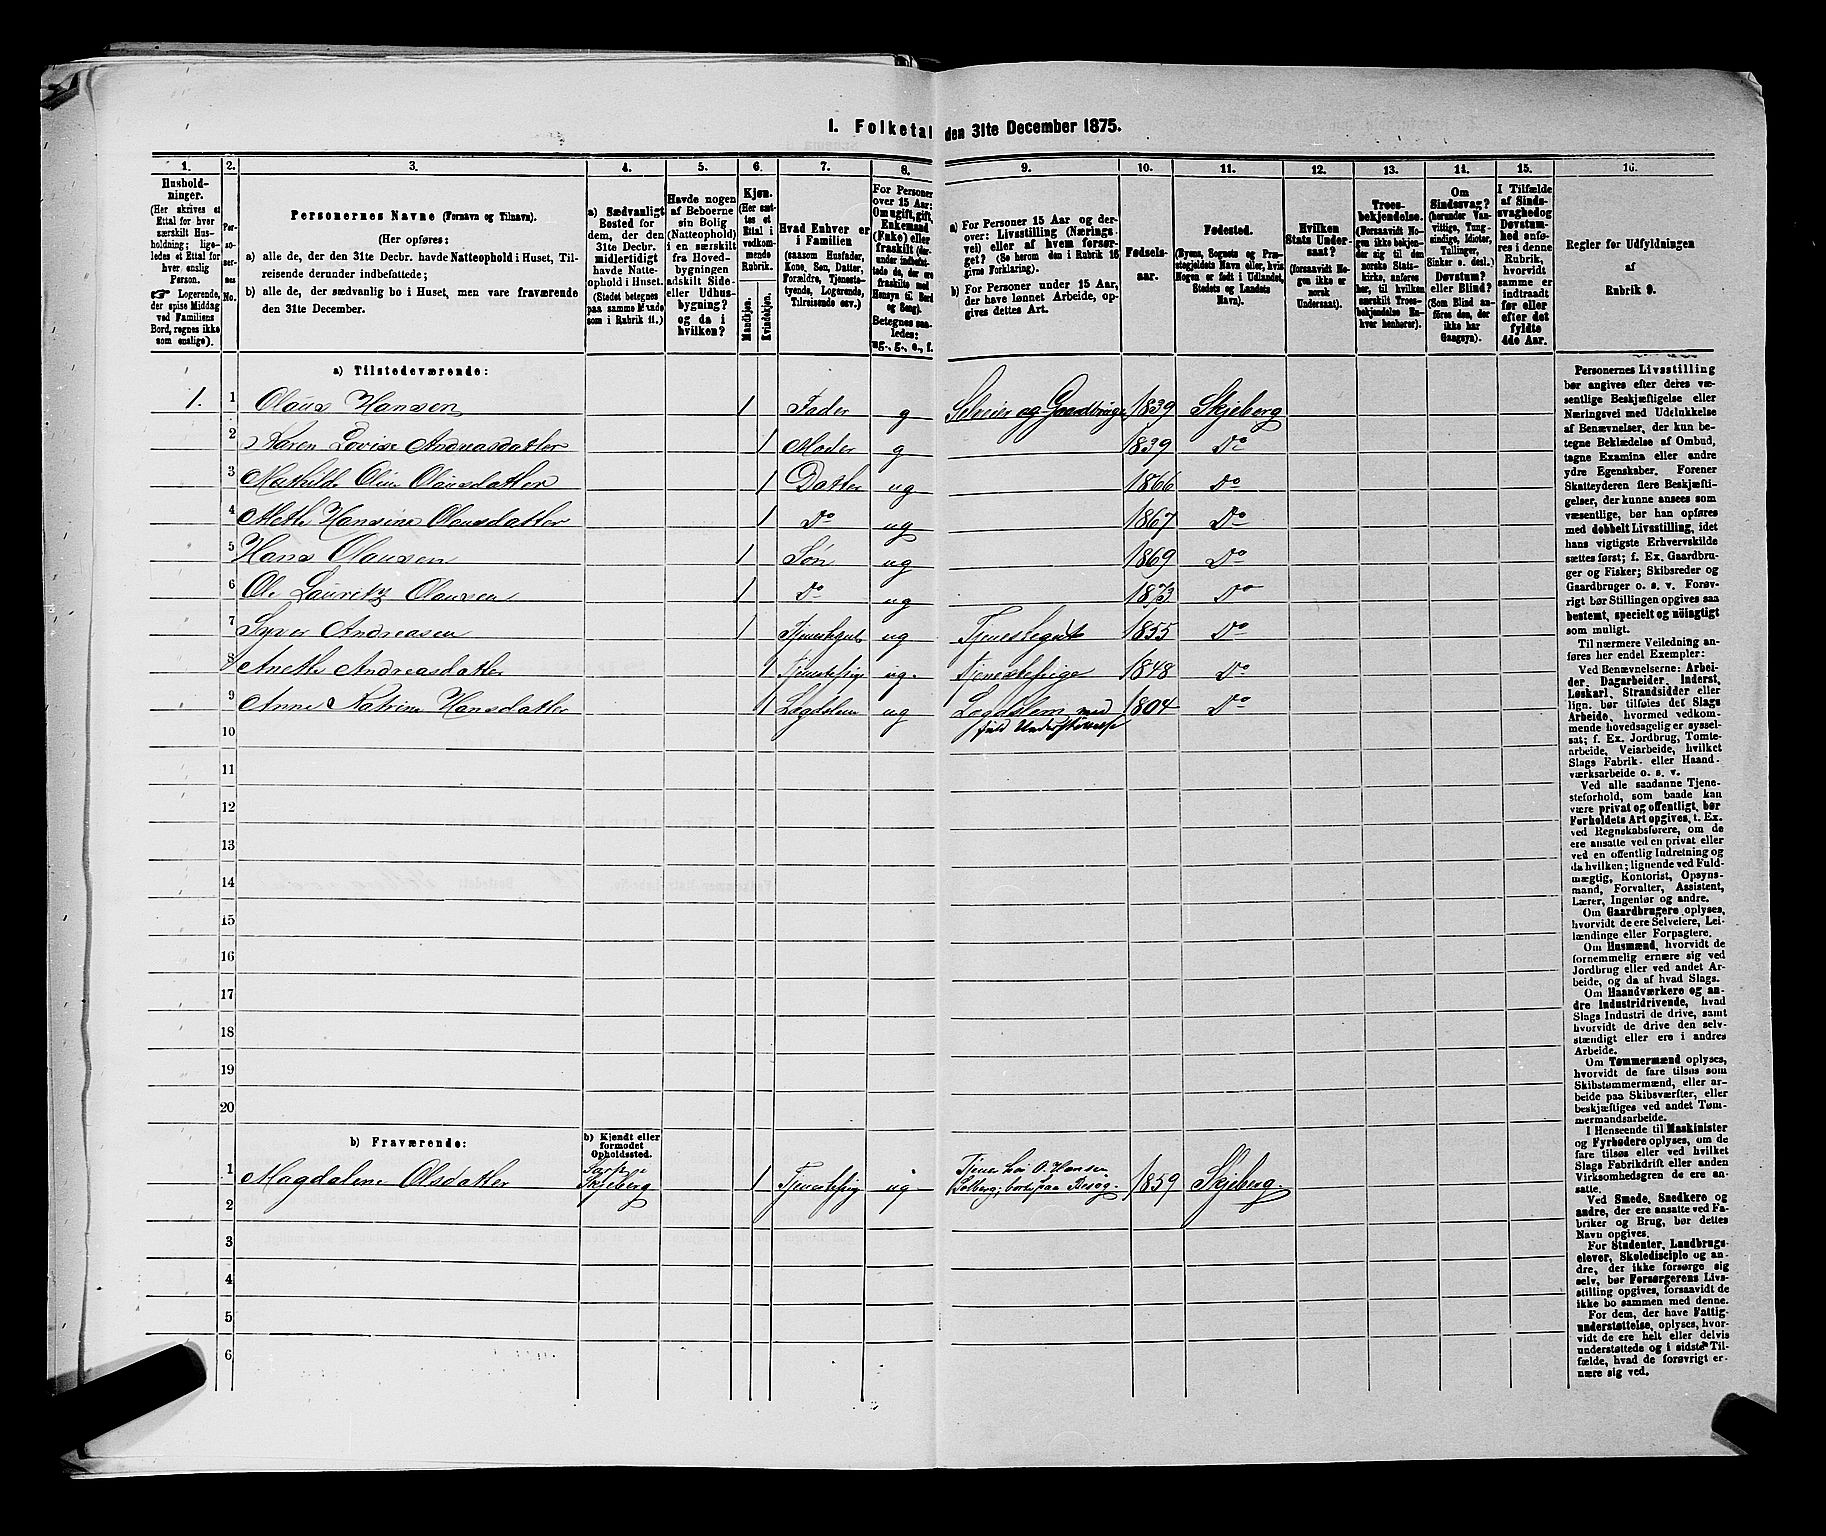 I. Folketal den 31te December 1875.
1. 2. 3. 4. 5. 6. 7. 8. 9. 10. 11. 12. 13. 14. 15. 16.
Husholdninger.
(Her skrives et
Ettal for hver
særskilt Hus-
holdning; lige-
ledes et Ettal for
hver enslig
Person.
☞ Logerende,
der spise Middag
ved Familiens
Bord, regnes ikke
som enslige).
Per-
so-
ner-
nes
No.
Personernes Navne (Fornavn og Tilnavn).
(Her opføres:
a) alle de, der den 31te Decbr. havde Natteophold i Huset, Til-
reisende derunder indbefattede;
b) alle de, der sædvanlig bo i Huset, men vare fraværende
den 31te December.
a) Sædvanligt
Bosted for
dem, der den
31te Decbr.
midlertidigt
havde Natte-
ophold i Huset.
(Stedet betegnes
paa samme Maade
som i Rubrik 11.)
Havde nogen
af Beboerne
sin Bolig
(Natteophold)
i en særskilt
fra Hoved-
bygningen
adskilt Side-
eller Udhus-
bygning?
og da i
hvilken?
Kjøn.
(Her sæt-
tes et
Ettal i
vedkom-
mende
Rubrik.
Mandkjøn.
Kvindekjøn.
Hvad Enhver er
i Familien
(saasom Husfader,
Kone, Søn, Datter,
Forældre, Tjeneste-
tyende, Logerende,
Tilreisende osv.)
For Personer
over 15 Aar:
Om ugift, gift,
Enkemand
(Enke) eller
fraskilt (der-
under indbefat-
tede de, der ere
fraskilte med
Hensyn til Bord
og Seng).
Betegnes saa-
ledes:
ug., g., e., f.
a) For Personer 15 Aar og der-
over: Livsstilling (Nærings-
vei) eller af hvem forsør-
get? (Se herom den i Rubrik 16
givne Forklaring).
b) For Personer under 15 Aar,
der have lønnet Arbeide, op-
gives dettes Art.
Fødsels-
aar.
Fødested.
(Byens, Sognets og Præ-
stegjeldets Navn eller, hvis
Nogen er født i Udlandet,
Stedets og Landets
Navn).
Hvilken
Stats Under-
saat?
(forsaavidt No-
gen ikke er
norsk
Undersaat).
Troes-
bekjendelse.
(Forsaavidt No-
gen ikke bekjen-
der sig til den
norske Stats-
kirke, anføres
her, til hvilken
særskilt Troes-
bekjendelse En-
hver henhører).
Om
Sindssvag?
(herunder Van-
vittige, Tung-
sindige, Idioter,
Tullinger,
Sinker o. desl.)
Døvstum?
eller Blind?
(Som Blind an-
føres den, der
ikke har
Gangsyn).
I Tilfælde
af Sinds-
svaghed og
Døvstum-
hed anfø-
res i denne
Rubrik,
hvorvidt
samme er
indtraadt
før eller
efter det
fyldte
4de Aar.
Regler for Udfyldningen
af
Rubrik 9.
a) Tilstedeværende:
1. 1 Olaus Hansen 1 Fader g Selveier og Gaardbruger 1839 Skjeberg
2 Karen Lovise Andreasdatter 1 Moder g 1839 Do
3 Mathilde Oline Olausdatter 1 Datter ug 1866 Do
4 Mathe Hansine Olausdatter 1 Do ug 1867 Do
5 Hans Olausen 1 Søn ug 1869 Do
6 Ole Lauritz Olausen 1 Do ug 1873 Do
7 Syver Andreasen 1 Tjenestegut ug Tjenestegut 1855 Do
8 Anethe Andreasdatter 1 Tjenestepige ug. Tjenestepige 1848 Do
9 Anne Katrine Hansdatter 1 Lægdslem ug Lægdslem med 1804 Do
10 fuld Understøttelse
11
12
13
14
15
16
17
18
19
20
b) Fraværende:
b) Kjendt eller
formodet
Opholdssted.
1 Magdalene Olsdatter Skjeberg 1 Tjenestepige ug Tjener hos O. Hansen
Solberg; borte paa Besøg. 1859 Skjeberg.
2
3
4
5
6
Personernes Livsstilling
bør angives efter deres væ-
sentlige Beskjæftigelse eller
Næringsvei med Udelukkelse
af Benævnelser, der kun be-
tegne Beklædelse af Ombud,
tagne Examina eller andre
ydre Egenskaber. Forener
Skatteyderen flere Beskjæfti-
gelser, der kunne ansees som
væsentlige, bør han opføres
med dobbelt Livsstilling, idet
hans vigtigste Erhvervskilde
sættes først; f. Ex. Gaardbru-
ger og Fisker; Skibsreder og
Gaardbruger o. s. v. Forøv-
rigt bør Stillingen opgives saa
bestemt, specielt og nöiagtigt
som muligt.
Til nærmere Veiledning an-
føres her endel Exempler:
Ved Benævnelserne: Arbei-
der, Dagarbeider, Inderst,
Løskarl, Strandsidder eller
lign. bør tilføies det Slags
Arbeide, hvormed vedkom-
mende hovedsagelig er syssel-
sat; f. Ex. Jordbrug, Tomte-
arbeide, Veiarbeide, hvilket
Slags Fabrik- eller Haand-
værksarbeide o. s. v.
Ved alle saadanne Tjene-
steforhold, som baade kan
være privat og offentligt, bør
Forholdets Art opgives, t. Ex.
ved Regnskabsførere, om de
ere ansatte ved en privat eller
ved en offentlig Indretning og
da hvilken; lignende ved Fuld-
mægtig, Kontorist, Opsyns-
mand, Forvalter, Assistent,
Lærer, Ingeniør og andre.
Om Gaardbrugere oplyses,
hvorvidt de ere Selveiere, Lei-
lændinge eller Forpagtere.
Om Husmænd, hvorvidt de
fornemmelig ernære sig ved
Jordbrug eller ved andet Ar-
beide, og da af hvad Slags.
Om Haandværkere og an-
dre Industridrivende, hvad
Slags Industri de drive, samt
hvorvidt de drive den selv-
stændigt eller ere i andres
Arbeide.
Om Tømmermænd oplyses,
hvorvidt de fare tilsøs som
Skibstømmermænd, eller ar-
beide paa Skibsværfter, eller
beskjæftiges ved andet Tøm-
mermandsarbeide.
I Henseende til Maskinister
og Fyrbødere oplyses, om de
fare tilsøs eller ved hvilket
Slags Fabrikdrift eller anden
Virksomhedsgren de ere an-
satte.
Ved Smede, Snedkere og
andre, der ere ansatte ved Fa-
briker og Brug, bør dettes
Navn opgives.
For Studenter, Landbrugs-
elever, Skoledisciple og an-
dre, der ikke forsørge sig
selv, bør Forsørgerens Livs-
stilling opgives, forsaavidt de
ikke bo sammen med denne.
For dem, der have Fattig-
understøttelse, oplyses, hvor-
vidt de ere helt eller delvis
understøttede og i sidste Til-
fælde, hvad de forøvrigt er-
nære sig ved.